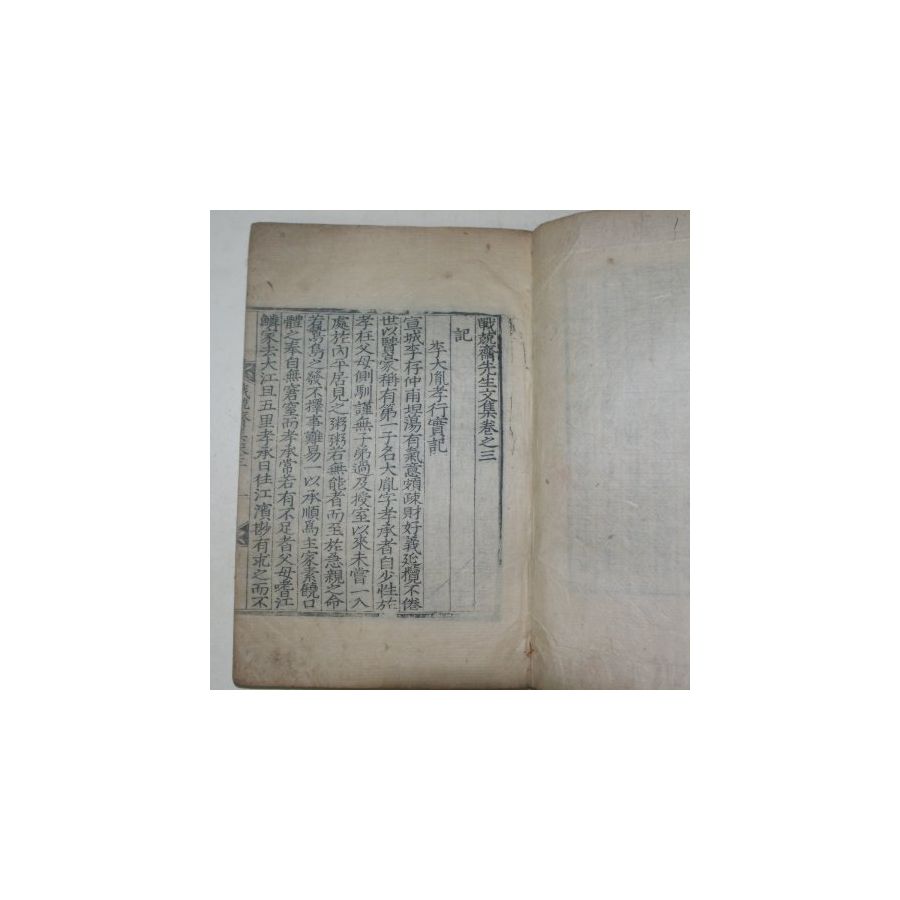 戰兢齋先生文集卷之三
記
李大胤孝行實記
宣城李存仲甫坦蕩有氣意頗疎財好義延攬不倦
世以賢豪稱有第一子名大胤字孝承者自少性於
孝在父母側馴謹無子弟過及授室以來未嘗一入
處於內平居見之粥粥若無能者而至於急親之命
若驚鳥之發不擇事難易一以承順爲主家素饒口
體之奉自無窘窒而孝承常若有不足者父母嗜江
鱗家去大江且五里孝承日往江濱抄有求之而不